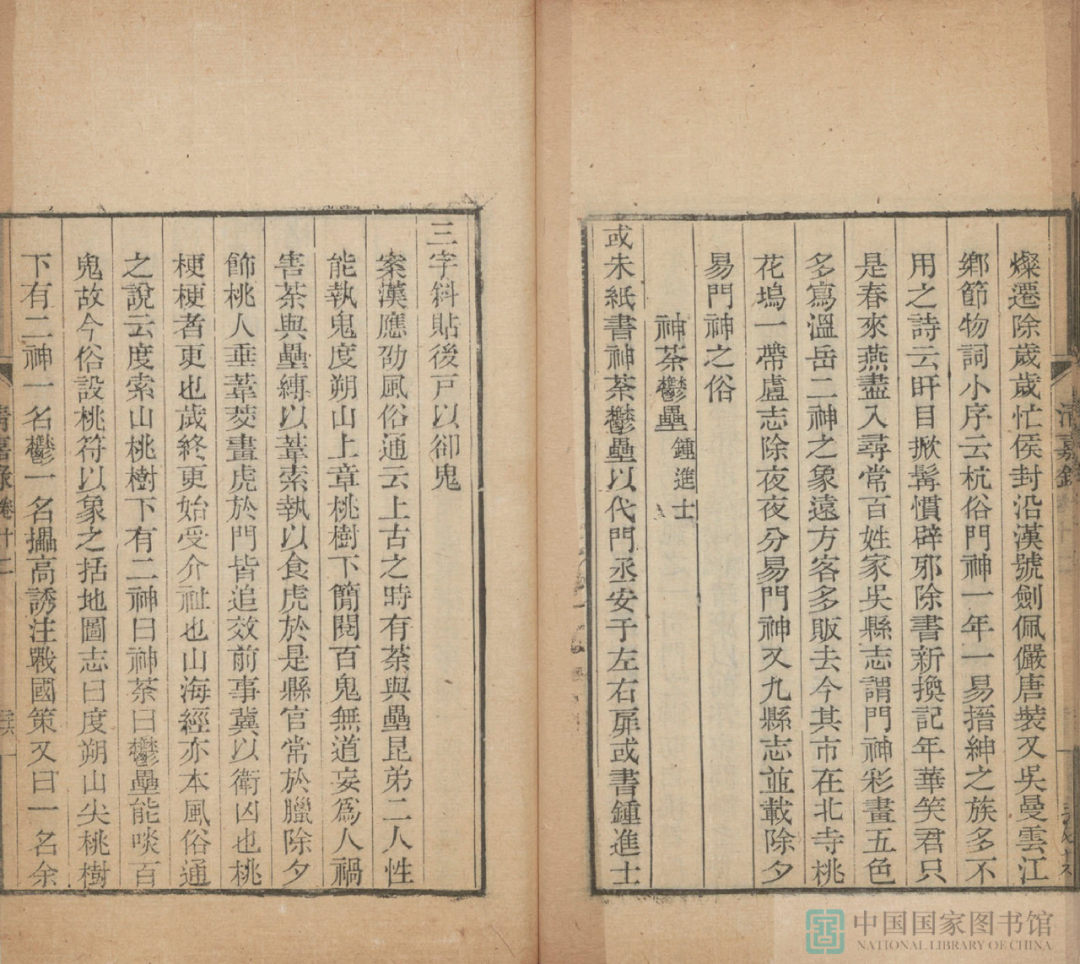 燦遷除歲歲忙侯封沿漢號劍佩儼唐裝又吳曼雲江
鄉節物詞小序云杭俗門神一年一易搢紳之族多不
用之詩云盱目掀髯慣辟邪除書新換記年華笑君只
是春來燕盡入尋常百姓家吳縣志謂門神彩畫五色
多寫溫岳二神之象遠方客多販去今其市在北寺桃
花塢一帶盧志除夜夜分易門神又九縣志並載除夕
易門神之俗
神荼鬱壘鍾進士
或朱紙書神荼鬱壘以代門丞安于左右扉或書鍾進士
三字斜貼後戸以卻鬼
案漢應劭風俗通云上古之時有荼與壘昆弟二人性
能執鬼度朔山上章桃樹下簡閱百鬼無道妄爲人禍
害荼與壘縛以葦索執以食虎於是縣官常於臘除夕
飾桃人垂葦茭畫虎於門皆追效前事冀以衛凶也桃
梗梗者更也歲終更始受介祉也山海經亦本風俗通
之說云度索山桃樹下有二神曰神荼曰鬱壘能啖百
鬼故今俗設桃符以象之括地圖志曰度朔山尖桃樹
下有二神一名鬱一名攝高誘注戰國策又曰一名余
清嘉錄
清嘉录卷十二
中国国家图书馆
NATIONAL LIBRARY OF CHINA